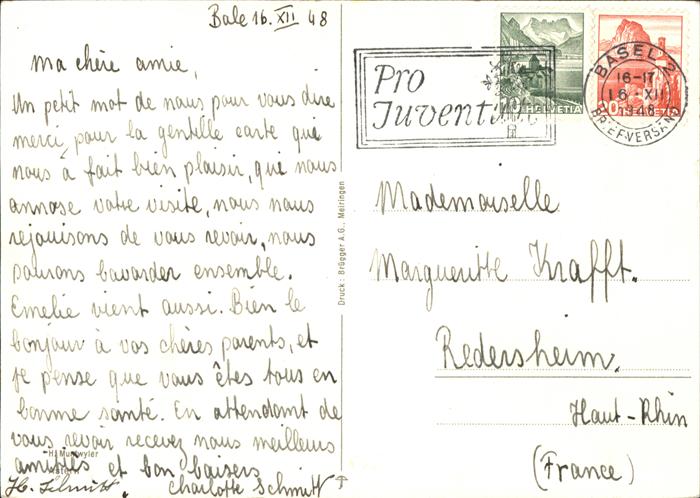 Bale 16. XII 48
ma chère amie,
Un petit mot de nous pour vous dire
merci, pour la gentille carte qui
nous à fait bien plaisir, qui nous
annose votre visite, nous nous
rejouisons de vous revoir, nous
pourons bavarder ensemble.
Emelie vient aussi. Bien le
bonjour à vos chères parents, et
je pense que vous êtes tous en
bonne santé. En attendant de
vous revoir recevez nous meilleurs
amitiés et bon baisers
Charlotte Schmitt
Druck: Brügger A.G., Meiringen
Pro
Juventute
HELVETIA
BASEL 2
16-17
16. XII
1948
BRIEFVERSAND
Mademoiselle
Margueritte Krafft.
Redersheim.
Haut-Rhin
(France)